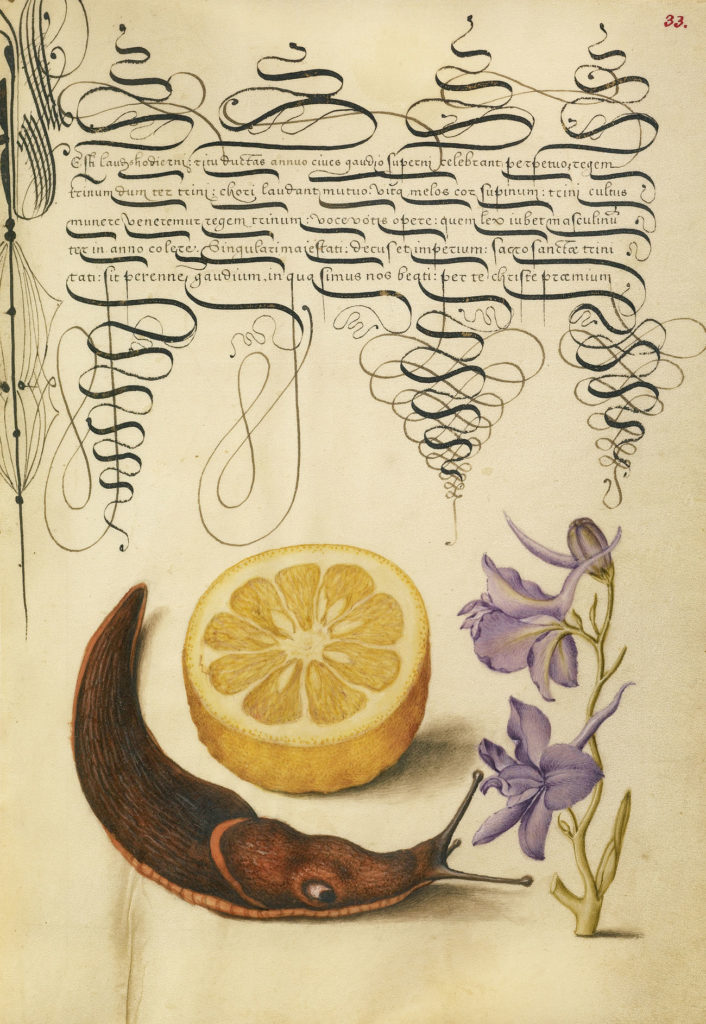 33.
Est laudis hodierni: ritu ductas annuo cives gaudio superni celebrant perpetuo, regem
trinum dum ter trini: chori laudant mutuo. Vita melos cor supinum: trini cultus
munere veneremur, regem trinum: voce votis opere: quem lex iubet masculinũ
ter in anno colere. Singulari maiestati: decus et imperium: sacro sanctæ trini
tati: sit perenne, gaudium, in qua simus nos beati: per te christe præmium